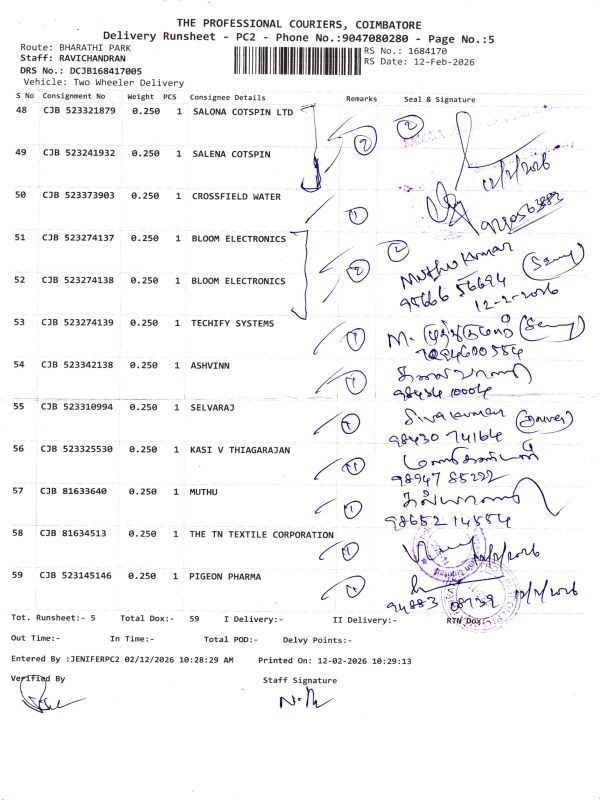 THE PROFESSIONAL COURIERS, COIMBATORE
Delivery Runsheet - PC2 - Phone No.:9047080280 - Page No.:5
Route: BHARATHI PARK
RS No.: 1684170
Staff: RAVICHANDRAN
RS Date: 12-Feb-2026
DRS No.: DCJB168417005
Vehicle: Two Wheeler Delivery
S No Consignment No Weight PCS Consignee Details Remarks Seal & Signature
48 CJB 523321879 0.250 1 SALONA COTSPIN LTD 2 2
49 CJB 523241932 0.250 1 SALENA COTSPIN
12/2/2026
50 CJB 523373903 0.250 1 CROSSFIELD WATER 1
51 CJB 523274137 0.250 1 BLOOM ELECTRONICS 2
Muthu Kumar
52 CJB 523274138 0.250 1 BLOOM ELECTRONICS 2
95666 56694
12-2-2026
53 CJB 523274139 0.250 1 TECHIFY SYSTEMS 1
M.
54 CJB 523342138 0.250 1 ASHVINN 1
98434 10004
55 CJB 523310994 0.250 1 SELVARAJ 1
Sivakumar
98430 74164
56 CJB 523325530 0.250 1 KASI V THIAGARAJAN 1
98947 85222
57 CJB 81633640 0.250 1 MUTHU 1
98652 14554
58 CJB 81634513 0.250 1 THE TN TEXTILE CORPORATION 1
12/2/2026
59 CJB 523145146 0.250 1 PIGEON PHARMA 1
94883 08739 12/2/2026
Tot. Runsheet:- 5 Total Dox:- 59 I Delivery:- II Delivery:- RTN Dox:-
Out Time:- In Time:- Total POD:- Delvy Points:-
Entered By :JENIFERPC2 02/12/2026 10:28:29 AM Printed On: 12-02-2026 10:29:13
Verified By Staff Signature